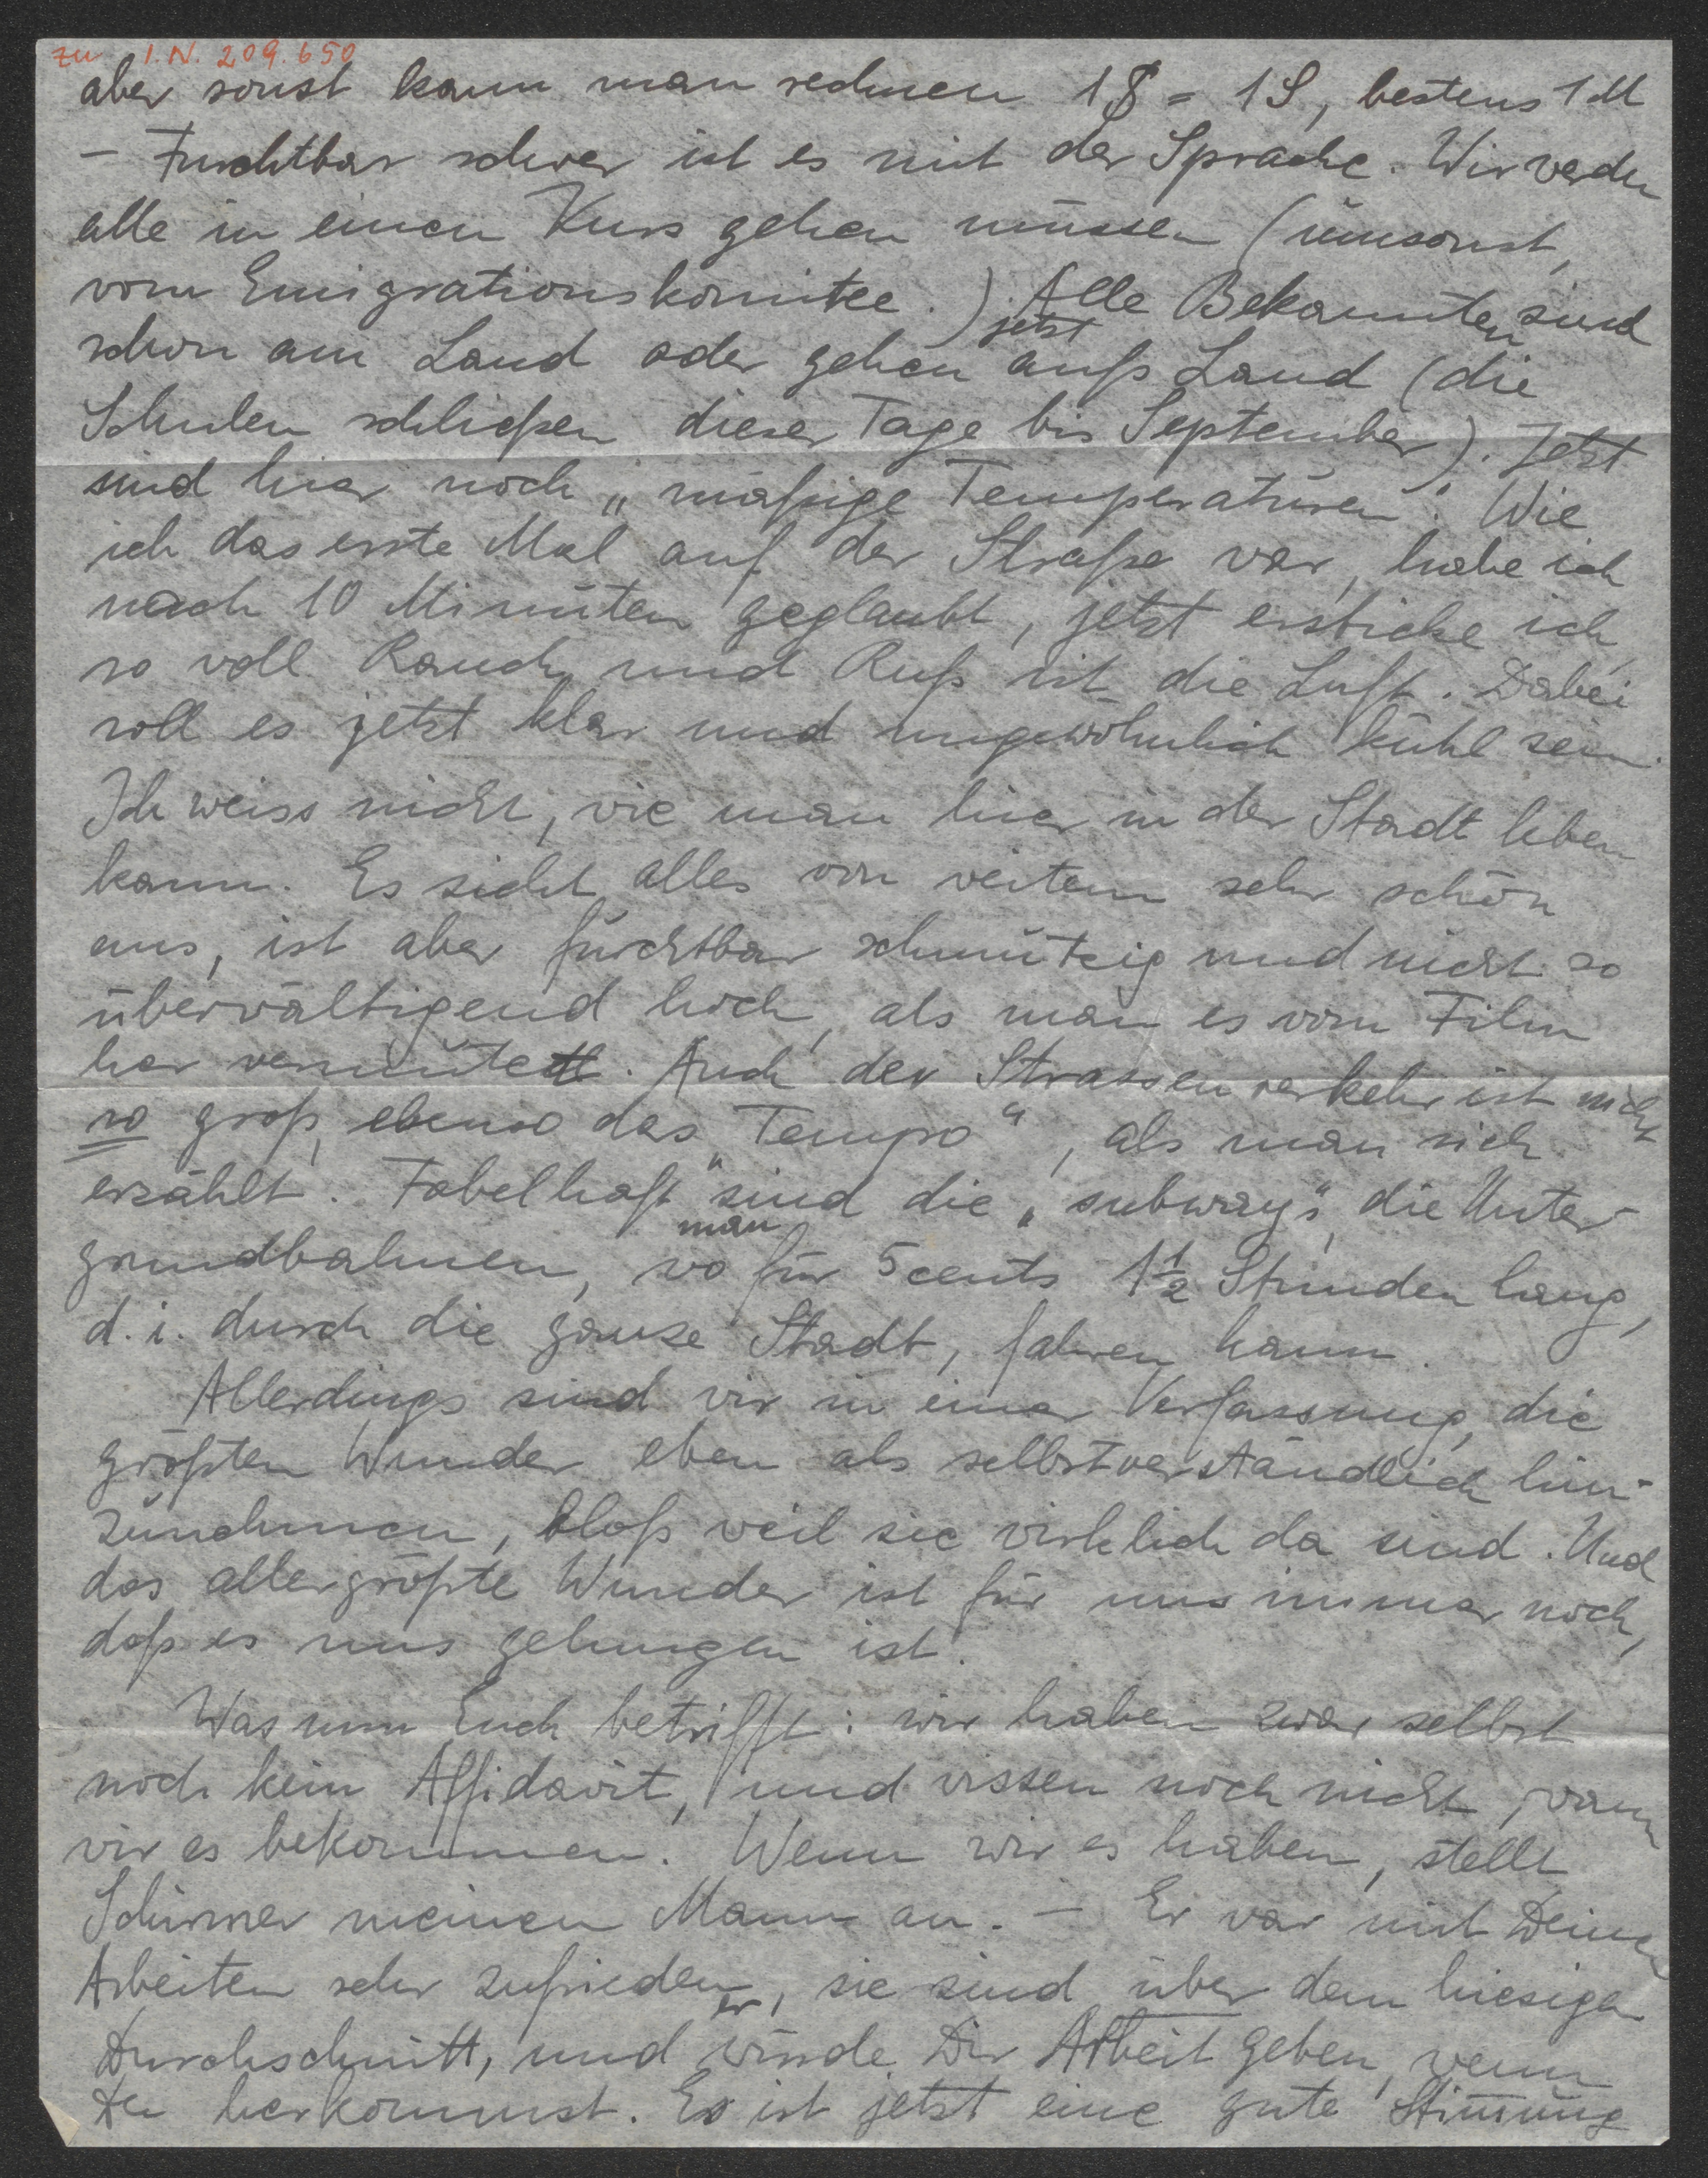 zu I.N. 209.650
aber sonst kann man rechnen 1 $ = 1 S, bestens 1 M
– Furchtbar schwer ist es mit der Sprache. Wir werden
alle in einen Kurs gehen müssen (umsonst,
vom Emigrationskomitee.) Alle Bekannten sind
schon am Land oder gehen jetzt aufs Land (die
Schulen schließen dieser Tage bis September). Jetzt
sind hier noch „mäßige Temperaturen". Wie
ich das erste Mal auf der Straße war, habe ich
nach 10 Minuten geglaubt, jetzt ersticke ich,
so voll Rauch und Ruß ist die Luft. Dabei
soll es jetzt klar und ungewöhnlich kühl sein.
Ich weiss nicht, wie man hier in der Stadt leben
kann. Es sieht alles von weitem sehr schön
aus, ist aber furchtbar schmutzig und nicht so
überwältigend hoch, als man es vom Film
her vermutet. Auch der Strassenverkehr ist nicht
so groß, ebenso das „Tempo", als man sich
erzählt. Fabelhaft sind die „subways", die Unter-
grundbahnen, wo man für 5 cents 1½ Stunden lang,
d. i. durch die ganze Stadt, fahren kann.
Allerdings sind wir in einer Verfassung, die
größten Wunder eben als selbstverständlich hin-
zunehmen, bloß weil sie wirklich da sind. Und
das allergrößte Wunder ist für uns immer noch,
daß es uns gelungen ist.
Was nun Euch betrifft: wir haben zwar selbst
noch kein Affidavit, und wissen noch nicht, wann
wir es bekommen. Wenn wir es haben, stellt
Schirmer meinen Mann an. – Er war mit Deinen
Arbeiten sehr zufrieden, sie sind über dem hiesigen
Durchschnitt, und er würde Dir Arbeit geben, wenn
Du herkommst. Es ist jetzt eine gute Stimmung